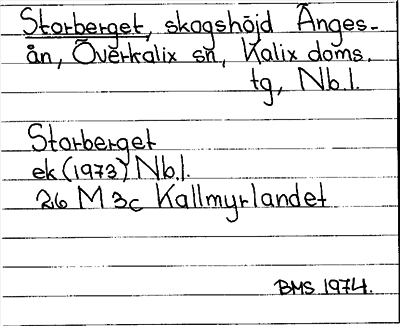 Storberget, skogshöjd Änges-
ån, Överkalix sn, Kalix doms.
tg, Nb.l.
Storberget
ek (1973) Nb.l.
26 M 3c Kallmyrlandet
BMS 1974.